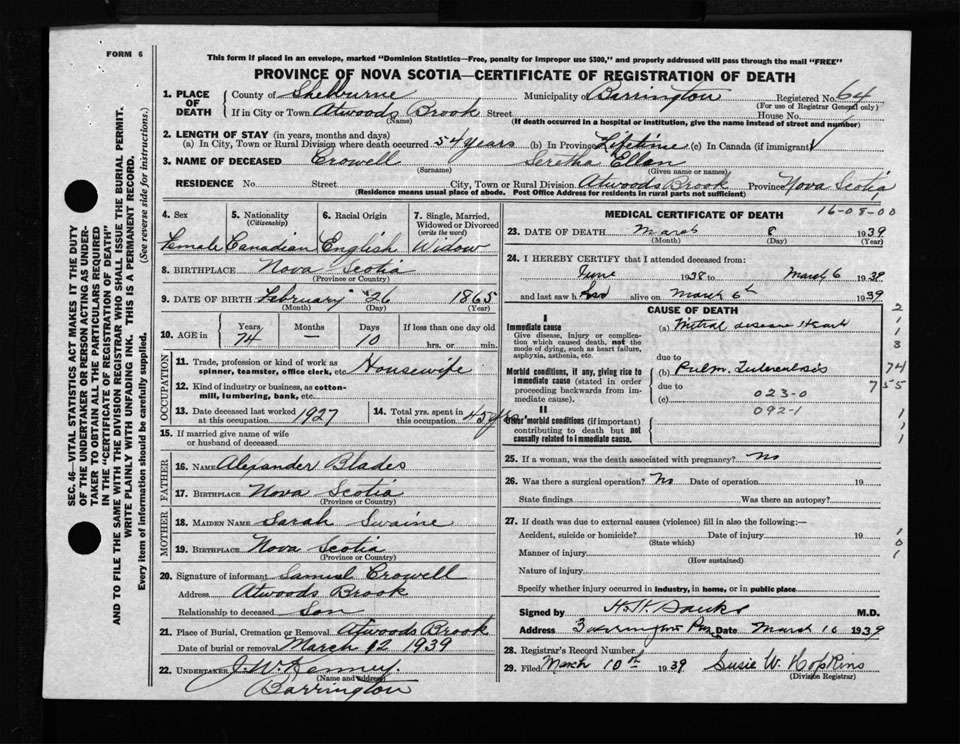 FORM 6
This form if placed in an envelope, marked "Dominion Statistics—Free, penalty for improper use $300," and properly addressed will pass through the mail "FREE"
PROVINCE OF NOVA SCOTIA—CERTIFICATE OF REGISTRATION OF DEATH
1. PLACE OF DEATH
County of Shelburne Municipality of Barrington Registered No. 64
(For use of Registrar General only)
If in City or Town Atwoods Brook Street House No.
(Name) (If death occurred in a hospital or institution, give the name instead of street and number)
2. LENGTH OF STAY (in years, months and days)
(a) In City, Town or Rural Division where death occurred 54 years (b) In Province Lifetime (c) In Canada (if immigrant)
3. NAME OF DECEASED Crowell Seretha Ellen
(Surname) (Given name or names)
RESIDENCE No. Street City, Town or Rural Division Atwoods Brook Province Nova Scotia
(Residence means usual place of abode. Post Office Address for residents in rural parts not sufficient)
4. Sex Female
5. Nationality (Citizenship) Canadian
6. Racial Origin English
7. Single, Married, Widowed or Divorced (write the word) Widow
8. BIRTHPLACE Nova Scotia
(Province or Country)
9. DATE OF BIRTH February 26 1865
(Month) (Day) (Year)
10. AGE in Years 74 Months — Days 10 If less than one day old
hrs. or min.
OCCUPATION
11. Trade, profession or kind of work as spinner, teamster, office clerk, etc. Housewife
12. Kind of industry or business, as cotton-mill, lumbering, bank, etc.
13. Date deceased last worked at this occupation 1927
14. Total yrs. spent in this occupation 45 yrs
15. If married give name of wife or husband of deceased
FATHER
16. NAME Alexander Blades
17. BIRTHPLACE Nova Scotia
(Province or Country)
MOTHER
18. MAIDEN NAME Sarah Swaine
19. BIRTHPLACE Nova Scotia
(Province or Country)
20. Signature of informant Samuel Crowell
Address Atwoods Brook
Relationship to deceased Son
21. Place of Burial, Cremation or Removal Atwoods Brook
Date of burial or removal March 12 1939
22. UNDERTAKER J. W. Kenney.
(Name and address)
Barrington
MEDICAL CERTIFICATE OF DEATH
16-08-00
23. DATE OF DEATH March 8 1939
(Month) (Day) (Year)
24. I HEREBY CERTIFY that I attended deceased from:
June 1938 to March 6 1939
and last saw her alive on March 6th 1939
CAUSE OF DEATH
I
Immediate cause
Give disease, injury or complication which caused death, not the mode of dying, such as heart failure, asphyxia, asthenia, etc.
(a) Mitral disease Heart
due to
Morbid conditions, if any, giving rise to immediate cause (stated in order proceeding backwards from immediate cause).
(b) Pulm. Tuberculosis
due to
(c) 023-0
092-1
II
Other morbid conditions (if important) contributing to death but not causally related to immediate cause.
2
1
1
3
74
7 55
1
1
1
25. If a woman, was the death associated with pregnancy? No
26. Was there a surgical operation? No Date of operation 19
State findings Was there an autopsy?
27. If death was due to external causes (violence) fill in also the following:—
Accident, suicide or homicide? Date of injury 19
(State which)
Manner of injury
(How sustained)
Nature of injury
Specify whether injury occurred in industry, in home, or in public place
1
0
1
Signed by M.D.
Address Barrington Date March 10 1939
28. Registrar's Record Number
29. Filed March 10th 1939 Susie W. Hopkins
(Division Registrar)
SEC. 46—VITAL STATISTICS ACT MAKES IT THE DUTY OF THE UNDERTAKER OR PERSON ACTING AS UNDERTAKER TO OBTAIN ALL THE PARTICULARS REQUIRED IN THE "CERTIFICATE OF REGISTRATION OF DEATH"
AND TO FILE THE SAME WITH THE DIVISION REGISTRAR WHO SHALL ISSUE THE BURIAL PERMIT.
WRITE PLAINLY WITH UNFADING INK. THIS IS A PERMANENT RECORD.
Every item of information should be carefully supplied. (See reverse side for instructions.)